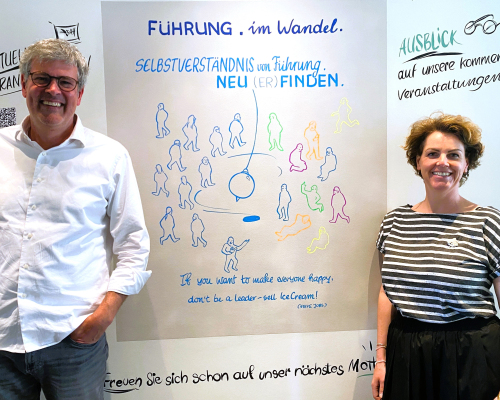 FÜHRUNG. im Wandel.
SELBSTVERSTÄNDNIS von Führung.
NEU (ER)FINDEN.
If you want to make everyone happy.
don't be a leader - sell Ice Cream!
(STEVE JOBS)
AUSBLICK
auf unsere kommen
Veranstaltungen
Freuen Sie sich schon auf unser nächstes Mot